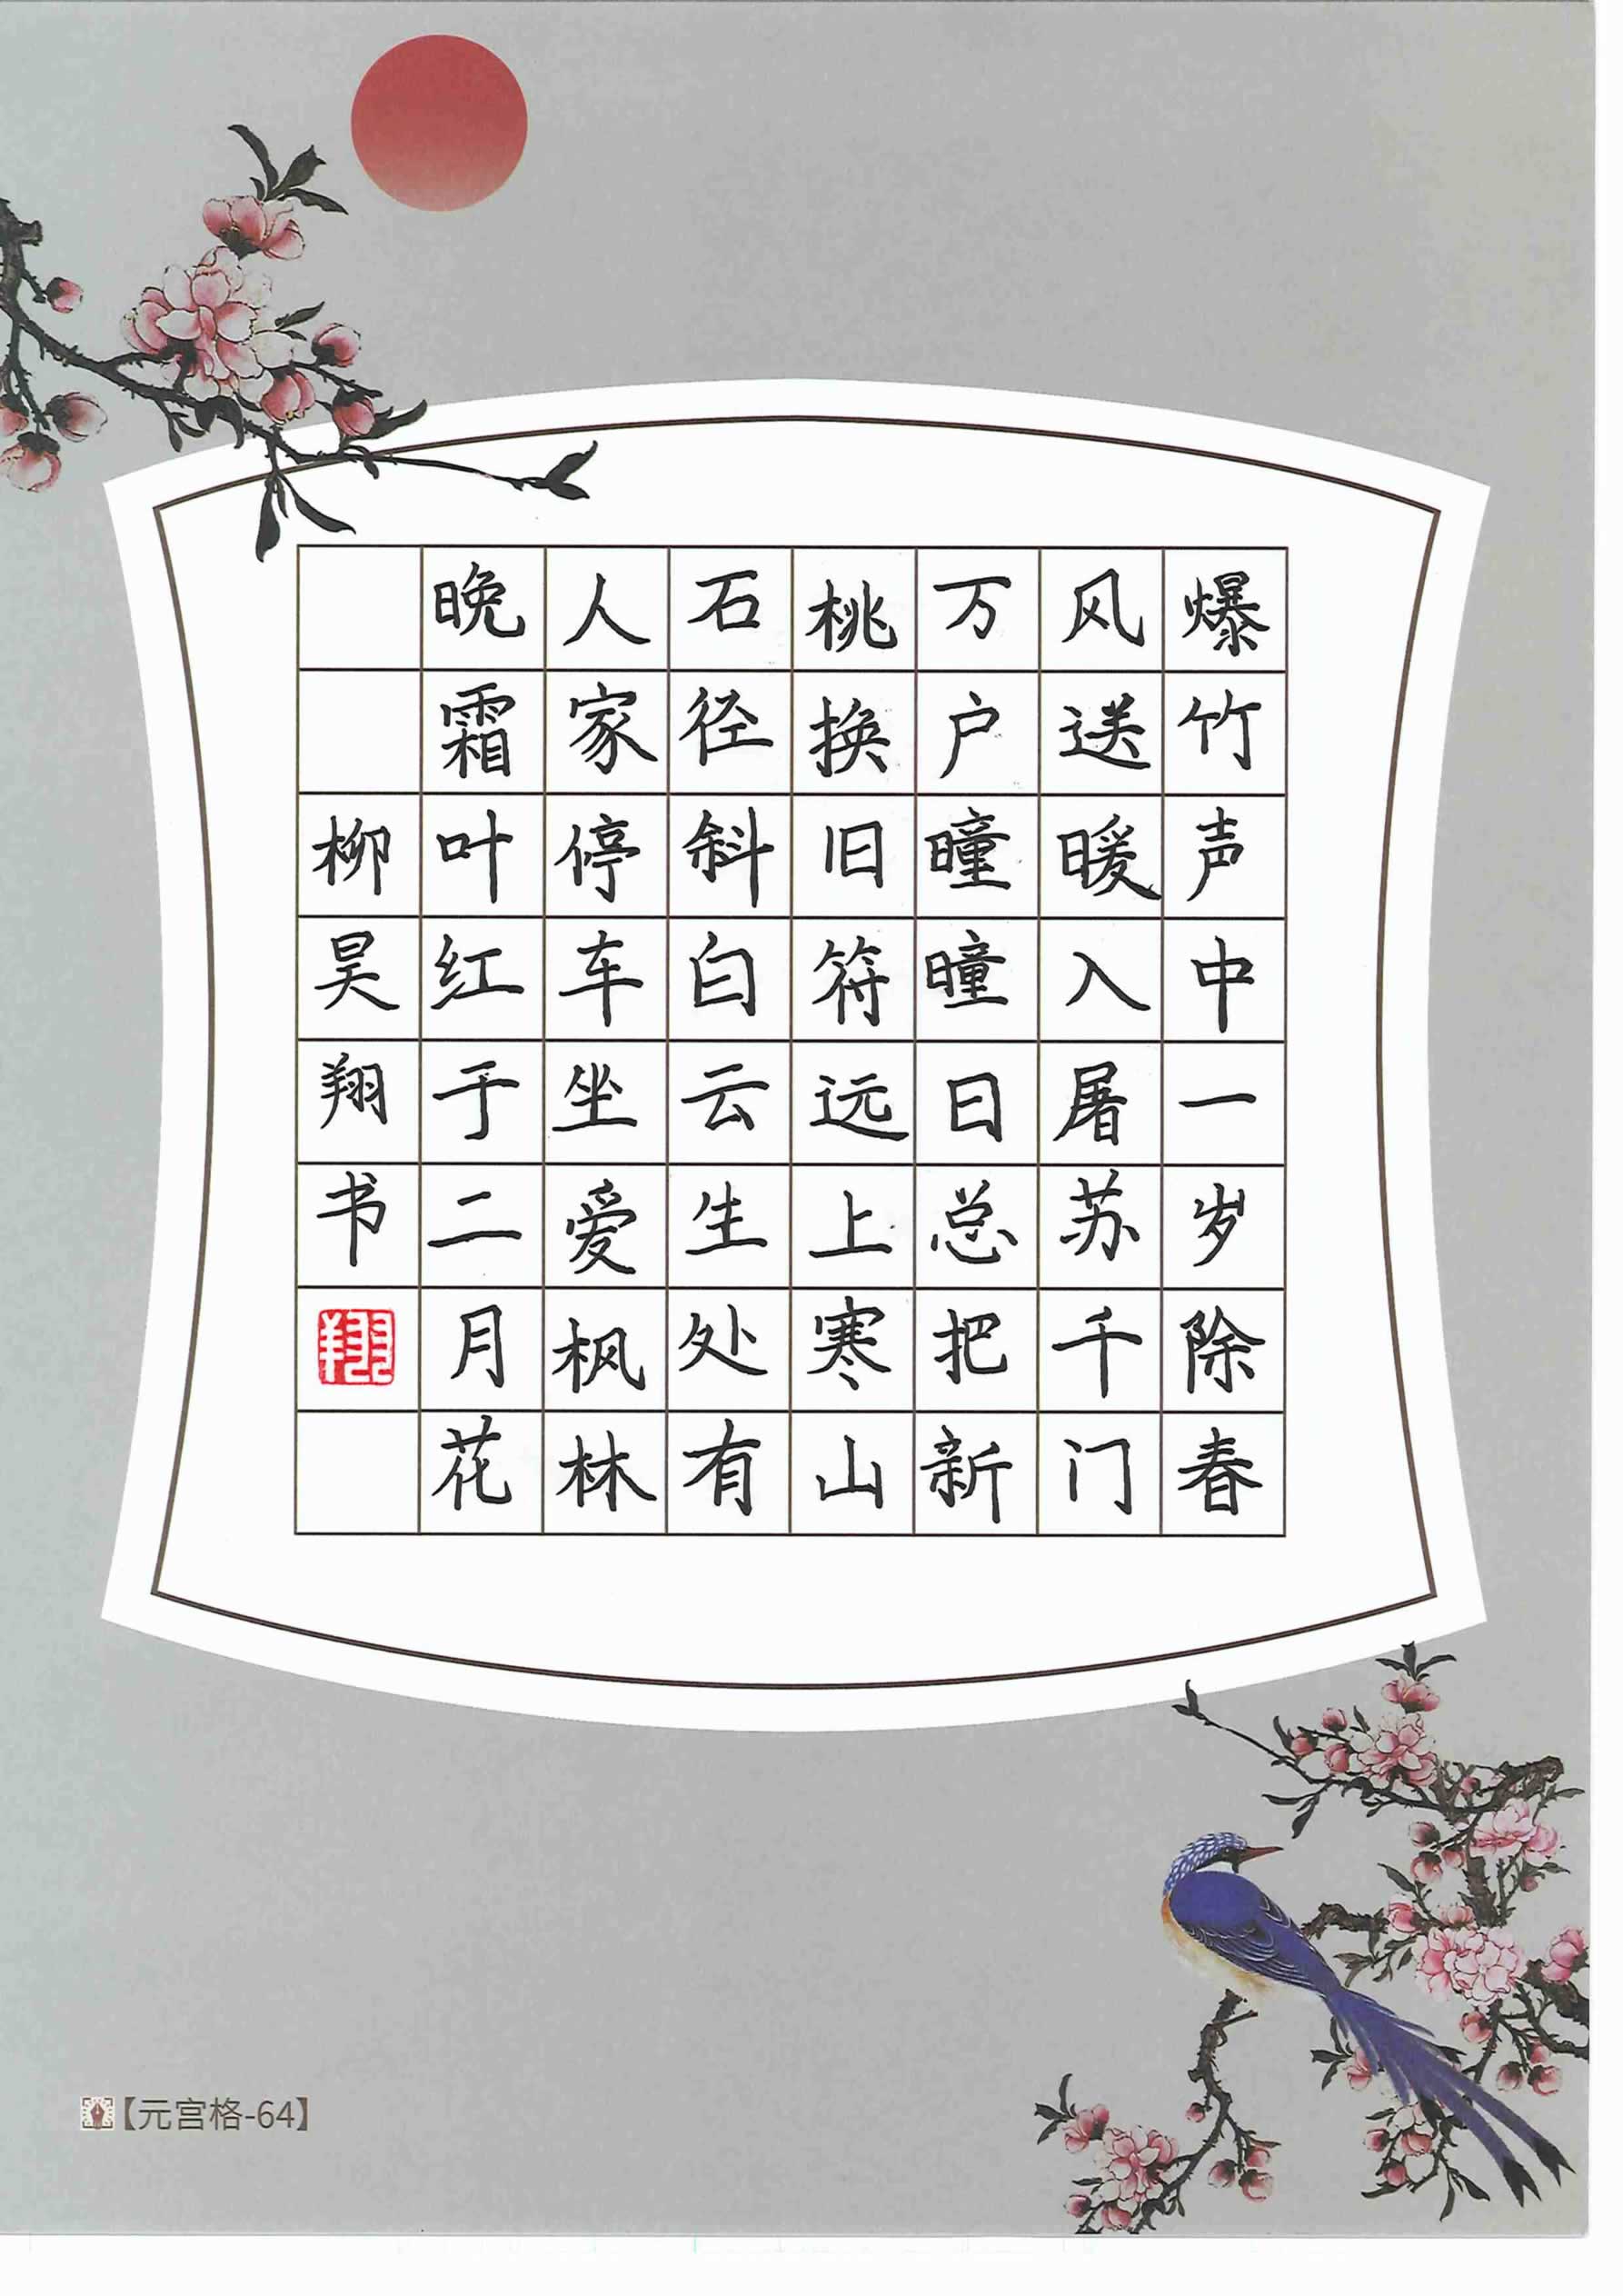 爆竹声中一岁除春
风送暖入屠苏千门
万户曈曈日总把新
桃换旧符远上寒山
石径斜白云生处有
人家停车坐爱枫林
晚霜叶红于二月花
柳昊翔书
翔
【元宫格-64】